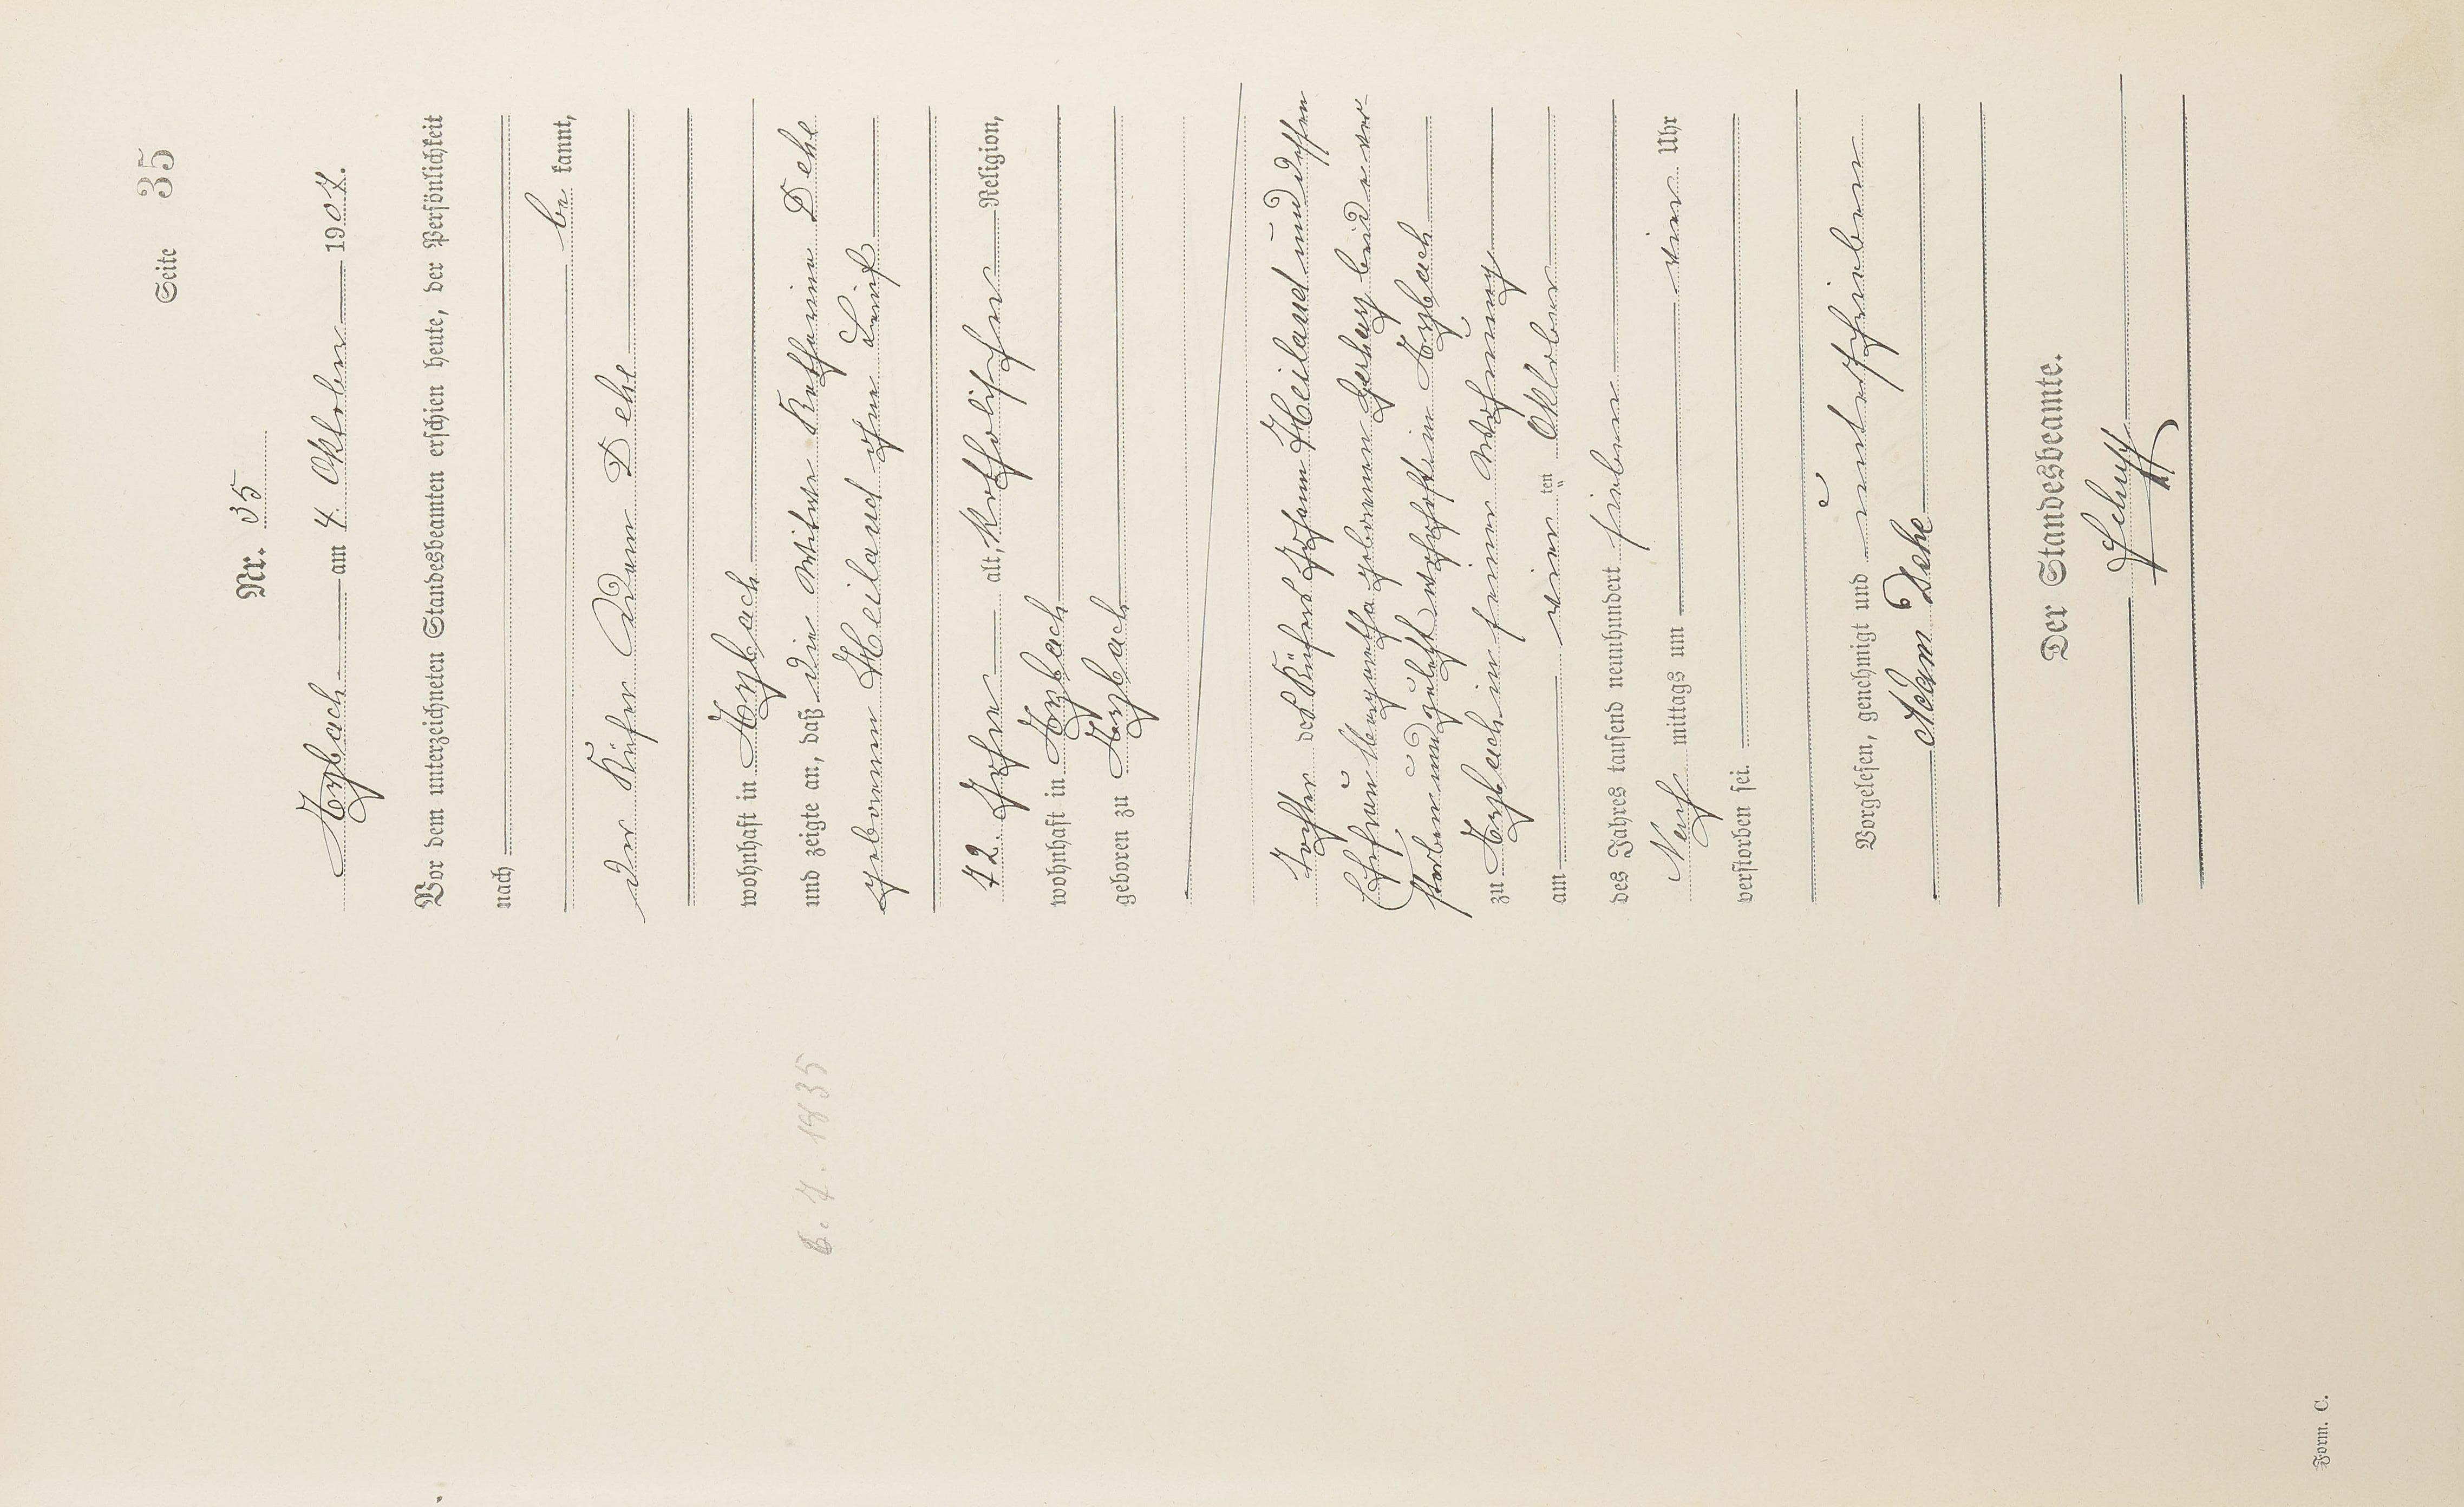 Seite 35
Nr. 35
Arzbach am 4. Oktober 1907.
Vor dem unterzeichneten Standesbeamten erschien heute, der Persönlichkeit
nach
be kannt,
der Küfer Adam Dehe
wohnhaft in Arzbach
und zeigte an, daß die Witwe Katharina Dehe
geborenen Heiland ohne Beruf
6.7.1835
72 Jahre alt, katholischer Religion,
wohnhaft in Arzbach
geboren zu Arzbach
Tochter des Küfers Johann Heiland und dessen
Ehefrau Margaretha geborenen Gerharz beide ver-
storben und zuletzt wohnhaft in Arzbach
zu Arzbach in seiner Wohnung
am vier ten Oktober
des Jahres tausend neunhundert sieben
Nach mittags um vier Uhr
verstorben sei.
Vorgelesen, genehmigt und unterschrieben
Adam Dehe
Der Standesbeamte.
Form. C.